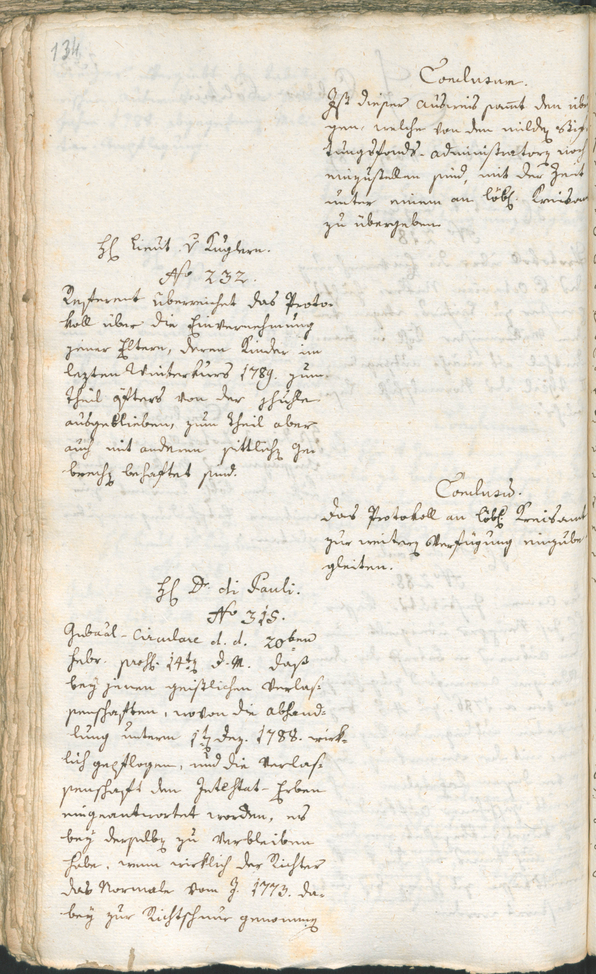 134.
Conclusum.
Ist dieser Ausweis sammt den übri
gen, welche von den milden Stif-
tungsfonds-administratorn noch
einzustellen sind, mit der Zeit
unter einem an löbl. Kreisamt
zu übergeben.
H. Lieut. v Kuglern.
No 232.
Referent überreichet das Proto-
koll über die Einvernehmung
jener Eltern, deren Kinder im
lezten Winterkurs 1789. zum
theil öfters von der Schule
ausgeblieben, zum theil aber
auch mit anderen sittlichen Ge-
brechen behaftet sind.
Conclusum.
Das Protokoll an löbl. Kreisamt
zur weitern Verfügung einzube-
gleiten.
H. D. di Pauli.
No 315.
Gubaal-Circulare d. d. 20ten
Febr. pross. 14ten d. M. daß
bey jenen geistlichen Verlas-
senschaften, wovon die abhand-
lung unterm 1ten Dez. 1788. wirk-
lich gepflogen, und die Verlas-
senschaft den Intestat-Erben
eingeantwortet worden, es
bey derselben zu verbleiben
habe, wenn wirklich der Richter
das Normale vom J. 1773. da-
bey zur Richtschnur genommen